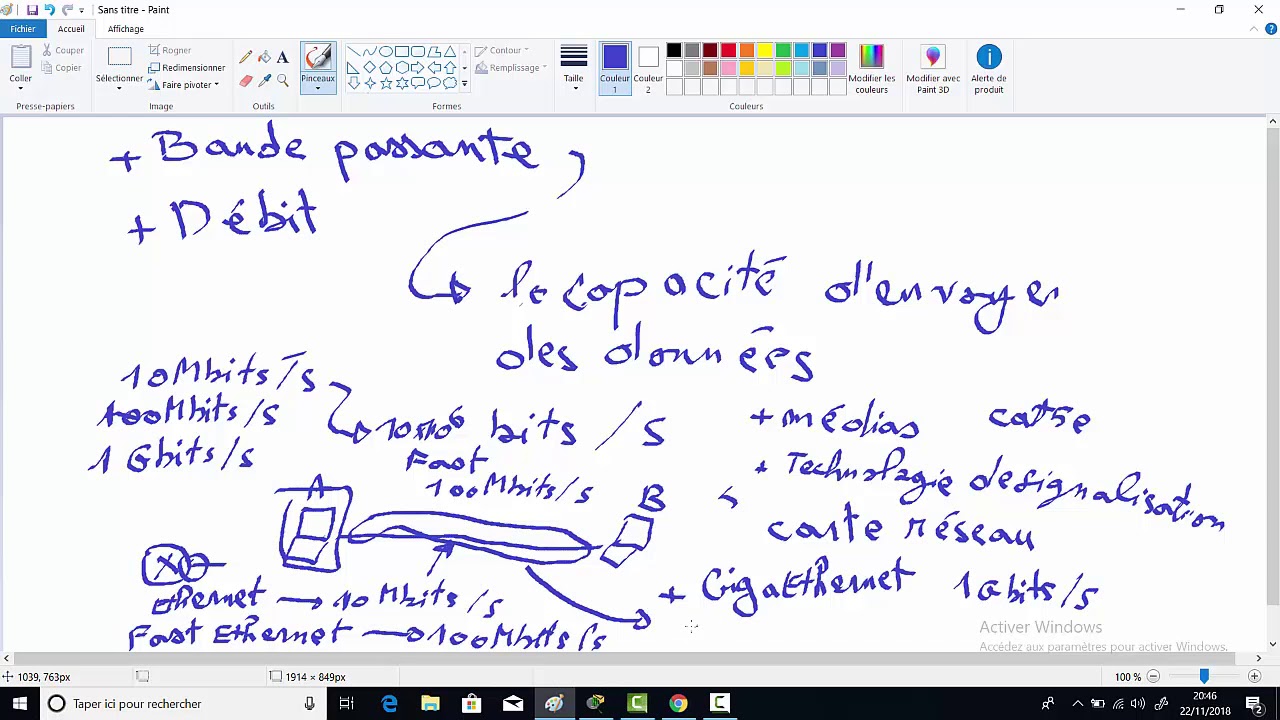 Sans titre - Paint
Fichier Accueil Affichage
Coller
Couper
Copier
Presse-papiers
Sélectionner
Rogner
Redimensionner
Faire pivoter
Image
Outils
Pinceaux
Contour
Remplissage
Formes
Taille
Couleur 1
Couleur 2
Modifier les couleurs
Couleurs
Modifier avec Paint 3D
Alerte de produit
+ Bande passante
+ Débit
la capacité d'envoyer
des données
10Mbits/s
100Mbits/s
1 Gbits/s
10x10⁶ bits /s
Fast
100Mbits/s
A
B
+ médias cat5e
+ Technologie de signalisation
carte réseau
Ethernet → 10 Mbits/s
Fast Ethernet → 100Mbits/s
+ GigaEthernet 1Gbits/s
Activer Windows
Accédez aux paramètres pour activer Windows.
1039, 763px
1914 × 849px
100 %
Taper ici pour rechercher
20:46
22/11/2018
2